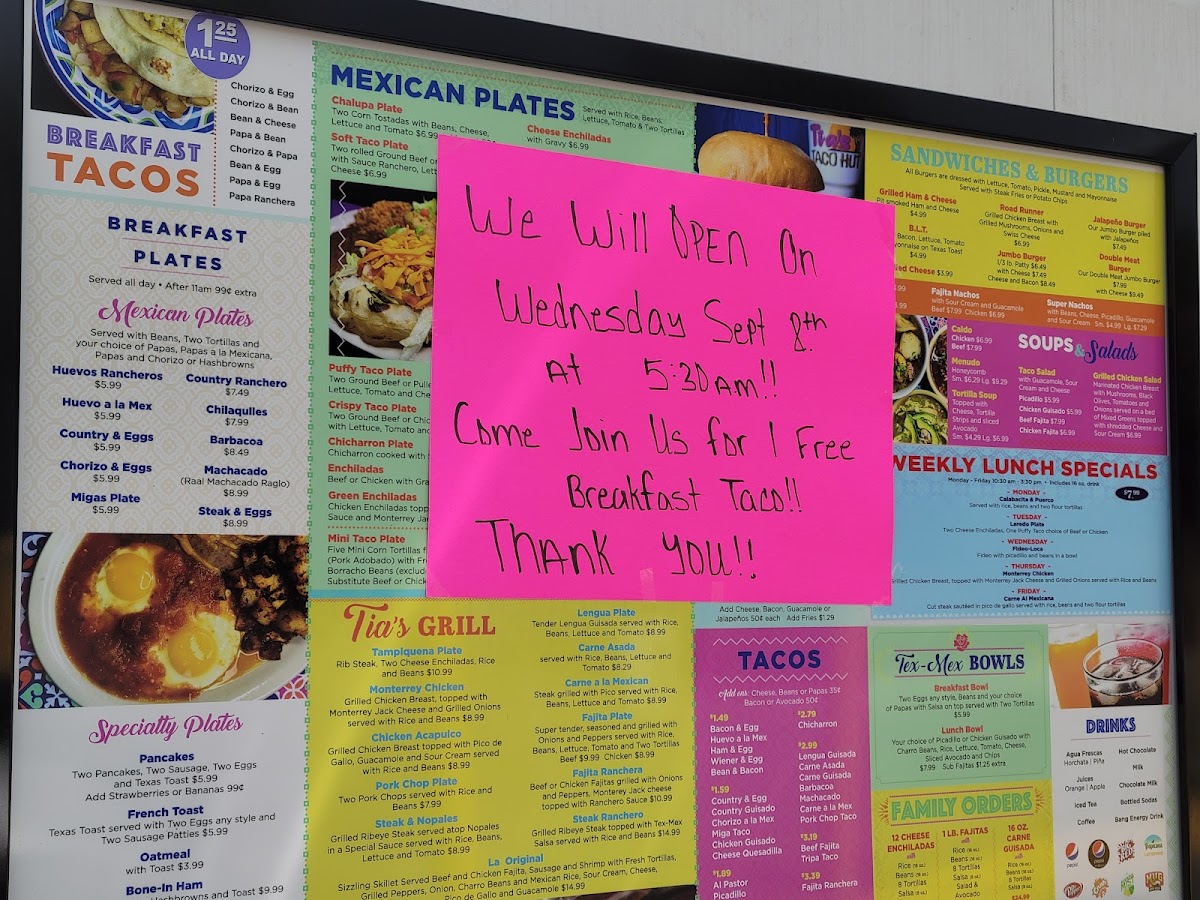 1.25
ALL DAY
Chorizo & Egg
Chorizo & Bean
Bean & Cheese
Papa & Bean
Chorizo & Papa
Bean & Egg
Papa & Egg
Papa Ranchera
BREAKFAST
TACOS
BREAKFAST
PLATES
Served all day • After 11am 99¢ extra
Mexican Plates
Served with Beans, Two Tortillas and
your choice of Papas, Papas a la Mexicana,
Papas and Chorizo or Hashbrowns
Huevos Rancheros
$5.99
Huevo a la Mex
$5.99
Country & Eggs
$5.99
Chorizo & Eggs
$5.99
Migas Plate
$5.99
Country Ranchero
$7.49
Chilaqulles
$7.99
Barbacoa
$8.49
Machacado
(Raal Machacado Raglo)
$8.99
Steak & Eggs
$8.99
Specialty Plates
Pancakes
Two Pancakes, Two Sausage, Two Eggs
and Texas Toast $5.99
Add Strawberries or Bananas 99¢
French Toast
Texas Toast served with Two Eggs any style and
Two Sausage Patties $5.99
Oatmeal
with Toast $3.99
Bone-In Ham
Hashbrowns and Toast $9.99
MEXICAN PLATES
Served with Rice, Beans,
Lettuce, Tomato & Two Tortillas
Chalupa Plate
Two Corn Tostadas with Beans, Cheese,
Lettuce and Tomato $6.99
Soft Taco Plate
Two rolled Ground Beef or
with Sauce Ranchero, Lett
Cheese $6.99
Cheese Enchiladas
with Gravy $6.99
Puffy Taco Plate
Two Ground Beef or Pulle
Lettuce, Tomato and Che
Crispy Taco Plate
Two Ground Beef or Chic
with Lettuce, Tomato and
Chicharron Plate
Chicharron cooked with
Enchiladas
Beef or Chicken with Gra
Green Enchiladas
Chicken Enchiladas topp
Sauce and Monterrey Jac
Mini Taco Plate
Five Mini Corn Tortillas f
(Pork Adobado) with Fr
Borracho Beans (exclud
Substitute Beef or Chick
We Will OPEN On
Wednesday Sept 8th
At 5:30am!!
Come Join Us for 1 Free
Breakfast Taco!!
THANK YOU!!
Tia's GRILL
Tampiquena Plate
Rib Steak, Two Cheese Enchiladas, Rice
and Beans $10.99
Monterrey Chicken
Grilled Chicken Breast, topped with
Monterrey Jack Cheese and Grilled Onions
served with Rice and Beans $8.99
Chicken Acapulco
Grilled Chicken Breast topped with Pico de
Gallo, Guacamole and Sour Cream served
with Rice and Beans $8.99
Pork Chop Plate
Two Pork Chops served with Rice and
Beans $7.99
Steak & Nopales
Grilled Ribeye Steak served atop Nopales
in a Special Sauce served with Rice, Beans,
Lettuce and Tomato $8.99
Lengua Plate
Tender Lengua Guisada served with Rice,
Beans, Lettuce and Tomato $8.99
Carne Asada
served with Rice, Beans, Lettuce and
Tomato $8.29
Carne a la Mexican
Steak grilled with Pico served with Rice,
Beans, Lettuce and Tomato $8.99
Fajita Plate
Super tender, seasoned and grilled with
Onions and Peppers served with Rice,
Beans, Lettuce, Tomato and Two Tortillas
Beef $9.99 Chicken $8.99
Fajita Ranchera
Beef or Chicken Fajitas grilled with Onions
and Peppers, Monterey Jack cheese
topped with Ranchero Sauce $10.99
Steak Ranchero
Grilled Ribeye Steak topped with Tex-Mex
Salsa served with Rice and Beans $14.99
La Original
Sizzling Skillet Served Beef and Chicken Fajita, Sausage and Shrimp with Fresh Tortillas,
Grilled Peppers, Onion, Charro Beans and Mexican Rice, Sour Cream, Cheese,
Pico de Gallo and Guacamole $14.99
Tia's
TACO HUT
Add Cheese, Bacon, Guacamole or
Jalapeños 50¢ each Add Fries $1.29
TACOS
Add ons: Cheese, Beans or Papas 35¢
Bacon or Avocado 50¢
$1.49
Bacon & Egg
Huevo a la Mex
Ham & Egg
Wiener & Egg
Bean & Bacon
$1.59
Country & Egg
Country Guisado
Chorizo a la Mex
Miga Taco
Chicken Guisado
Cheese Quesadilla
$1.89
Al Pastor
Picadillo
$2.79
Chicharron
$2.99
Lengua Guisada
Carne Asada
Carne Guisada
Barbacoa
Machacado
Carne a la Mex
Pork Chop Taco
$3.19
Beef Fajita
Tripa Taco
$3.39
Fajita Ranchera
SANDWICHES & BURGERS
All Burgers are dressed with Lettuce, Tomato, Pickle, Mustard and Mayonnaise
Served with Steak Fries or Potato Chips
Grilled Ham & Cheese
Pit smoked Ham and Cheese
$4.99
B.L.T.
Bacon, Lettuce, Tomato
yonnaise on Texas Toast
$4.99
ied Cheese $3.99
Road Runner
Grilled Chicken Breast with
Grilled Mushrooms, Onions and
Swiss Cheese
$6.99
Jumbo Burger
1/3 lb. Patty $6.49
with Cheese $7.49
Cheese and Bacon $8.49
Jalapeño Burger
Our Jumbo Burger piled
with Jalapeños
$7.49
Double Meat
Burger
Our Double Meat Jumbo Burger
$7.99
with Cheese $9.49
Fajita Nachos
with Sour Cream and Guacamole
Beef $7.99 Chicken $6.99
Super Nachos
with Beans, Cheese, Picadillo, Guacamole
and Sour Cream Sm. $4.99 Lg. $7.29
SOUPS & Salads
Caldo
Chicken $6.99
Beef $7.99
Menudo
Honeycomb
Sm. $6.29 Lg. $9.29
Tortilla Soup
Topped with
Cheese, Tortilla
Strips and sliced
Avocado
Sm. $4.29 Lg. $6.99
Taco Salad
with Guacamole, Sour
Cream and Cheese
Picadillo $5.99
Chicken Guisado $5.99
Beef Fajita $7.99
Chicken Fajita $6.99
Grilled Chicken Salad
Marinated Chicken Breast
with Mushrooms, Black
Olives, Tomatoes and
Onions served on a bed
of Mixed Greens topped
with shredded Cheese and
Sour Cream $6.99
WEEKLY LUNCH SPECIALS
Monday - Friday 10:30 am - 3:30 pm • Includes 16 oz. drink
$7.99
- MONDAY -
Calabacita & Puerco
Served with rice, beans and two flour tortillas
- TUESDAY -
Laredo Plate
Two Cheese Enchiladas, One Puffy Taco choice of Beef or Chicken
- WEDNESDAY -
Fideo-Loca
Fideo with picadillo and beans in a bowl
- THURSDAY -
Monterrey Chicken
Grilled Chicken Breast, topped with Monterrey Jack Cheese and Grilled Onions served with Rice and Beans
- FRIDAY -
Carne Al Mexicana
Cut steak sautéed in pico de gallo served with rice, beans and two flour tortillas
Tex-Mex BOWLS
Breakfast Bowl
Two Eggs any style, Beans and your choice
of Papas with Salsa on top served with Two Tortillas
$5.99
Lunch Bowl
Your choice of Picadillo or Chicken Guisado with
Charro Beans, Rice, Lettuce, Tomato, Cheese,
Sliced Avocado and Chips
$7.99 Sub Fajitas $1.25 extra
FAMILY ORDERS
12 CHEESE
ENCHILADAS
with
Rice (16 oz.)
Beans (16 oz.)
8 Tortillas
Salsa (8 oz.)
1 LB. FAJITAS
with
Rice (16 oz.)
Beans (16 oz.)
8 Tortillas
Salsa (8 oz.)
Salad &
Avocado
16 OZ.
CARNE
GUISADA
with
Rice (16 oz.)
Beans (16 oz.)
8 Tortillas
Salsa (8 oz.)
$24.99
DRINKS
Agua Frescas
Horchata | Piña
Juices
Orange | Apple
Iced Tea
Coffee
Hot Chocolate
Milk
Chocolate Milk
Bottled Sodas
Bang Energy Drink
pepsi
pepsi
Dr Pepper
MUG